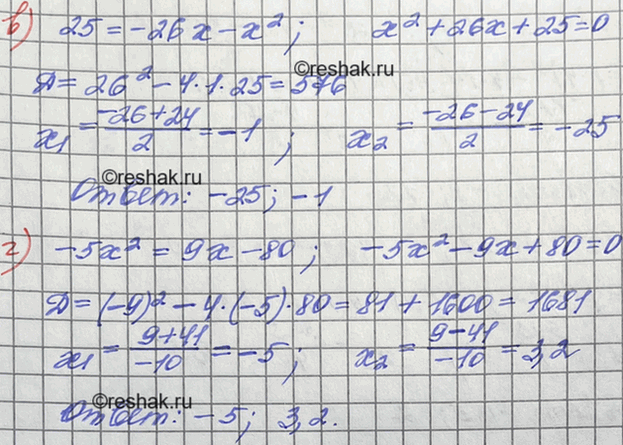 в) 25 = -26x - x²; x² + 26x + 25 = 0
©reshak.ru
Д = 26² - 4·1·25 = 576
x₁ = (-26+24)/2 = -1; x₂ = (-26-24)/2 = -25
©reshak.ru
Ответ: -25; -1
г) -5x² = 9x - 80; -5x² - 9x + 80 = 0
Д = (-9)² - 4·(-5)·80 = 81 + 1600 = 1681
x₁ = (9+41)/-10 = -5; x₂ = (9-41)/-10 = 3,2
©reshak.ru
Ответ: -5; 3,2.